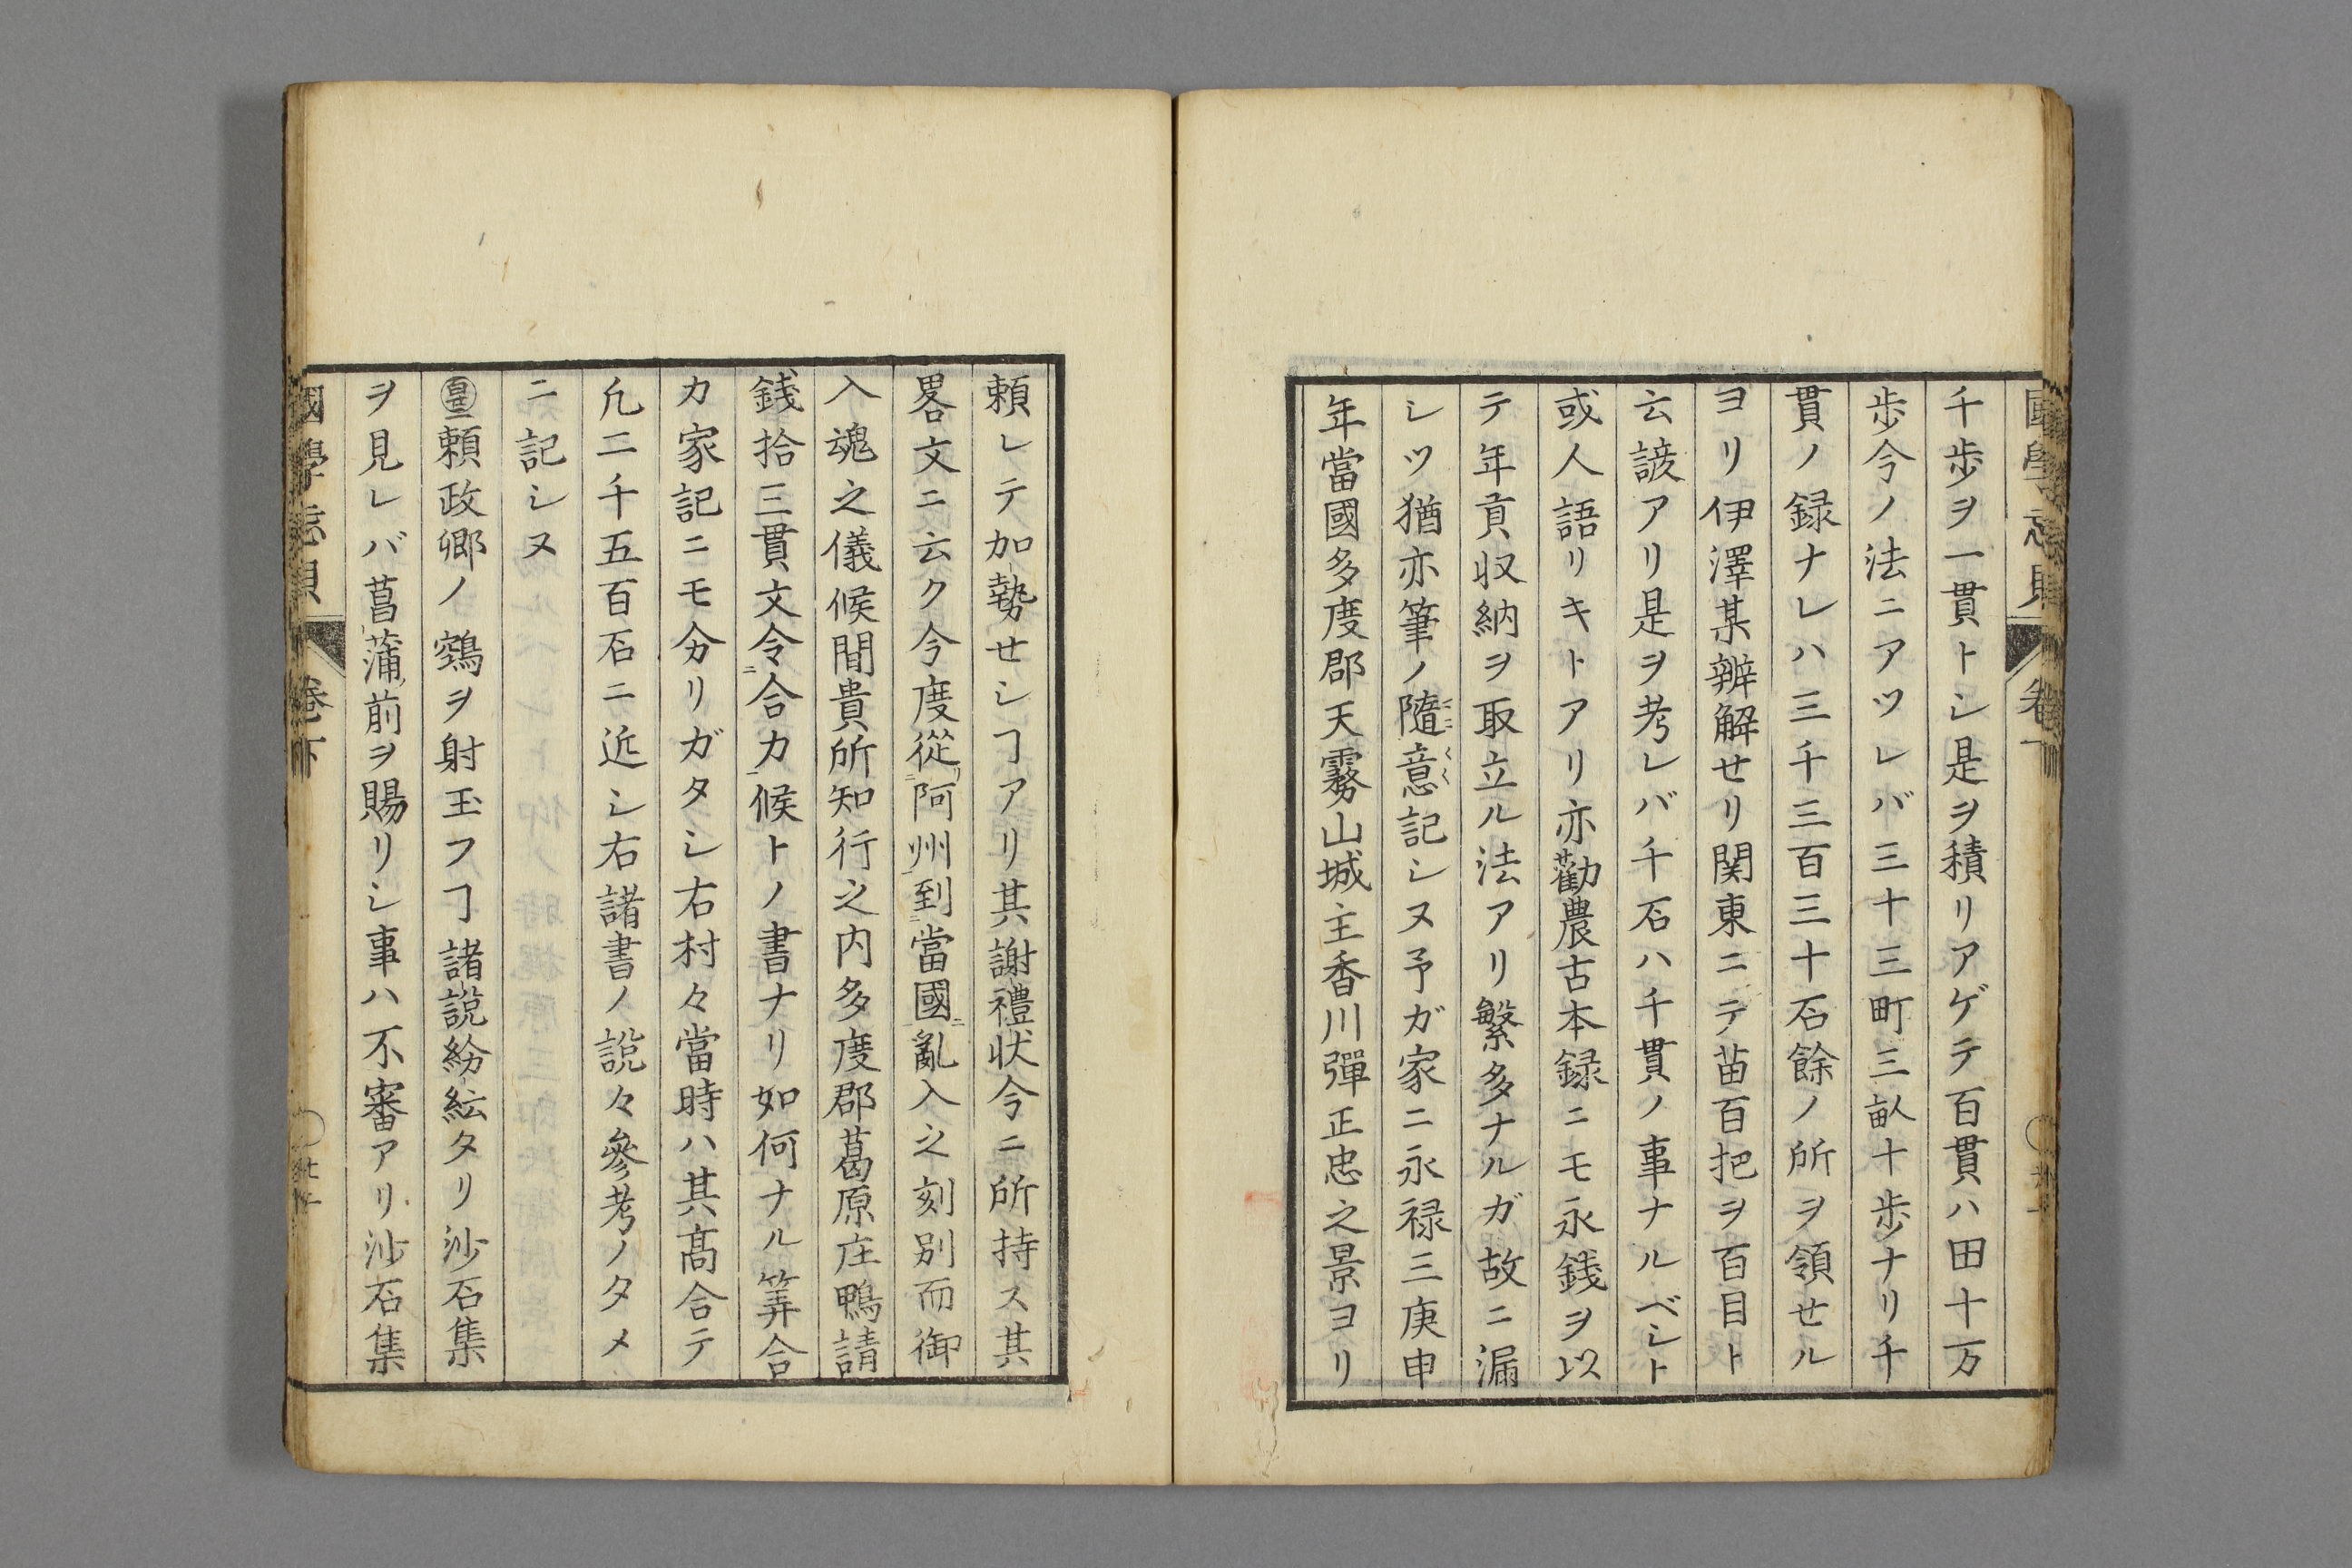 千歩ヲ一貫トシ是ヲ積リアゲテ百貫ハ田十万
歩今ノ法ニアツレバ三十三町三畝十歩ナリ千
貫ノ録ナレハ三千三百三十石餘ノ所ヲ領せル
ヨリ伊澤某辨解せリ関東ニテ苗百把ヲ百目ト
云諺アリ是ヲ考レバ千石ハ千貫ノ事ナルベシト
或人語リキトアリ亦勸農古本録ニモ永銭ヲ以
テ年貢収納ヲ取立ル法アリ繁多ナルガ故ニ漏
シツ猶亦筆ノ隨意記シヌ予ガ家ニ永禄三庚申
年當國多度郡天霧山城主香川彈正忠之景ヨリ
頼レテ加勢せシヿアリ其謝禮状今ニ所持ス其
畧文ニ云ク今度從阿州到當國亂入之刻別而御
入魂之儀候間貴所知行之内多度郡葛原庄鴨請
銭拾三貫文令合力候トノ書ナリ如何ナル筭合
カ家記ニモ分リガタシ右村々當時ハ其髙合テ
凢二千五百石ニ近シ右諸書ノ説々參考ノタメ
ニ記シヌ
頼政郷ノ鵺ヲ射玉フヿ諸説紛紜タリ沙石集
ヲ見レバ菖蒲前ヲ賜リシ事ハ不審アリ沙石集
國學忘貝 卷下